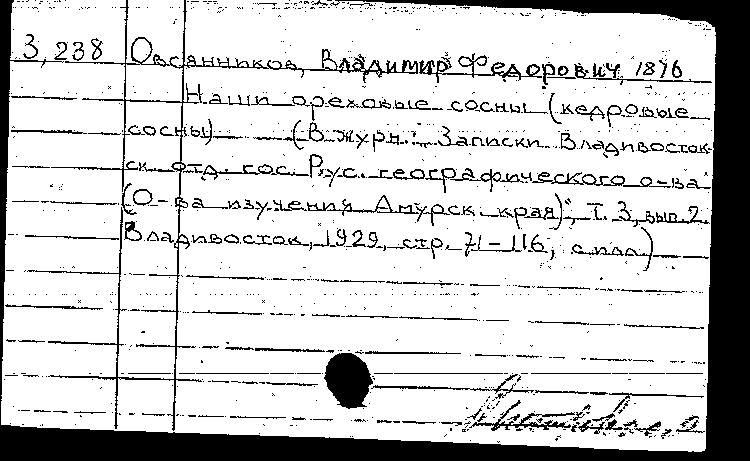 3,238 Овсянников, Владимир Федорович, 1876
Наши ореховые сосны (кедровые
сосны) (В журн.: Записки Владивосток
ск. отд. гос. Рус. географического о-ва
(О-ва изучения Амурск. края)", Т. 3, вып. 2.
Владивосток, 1929, стр. 71-116, с илл.)